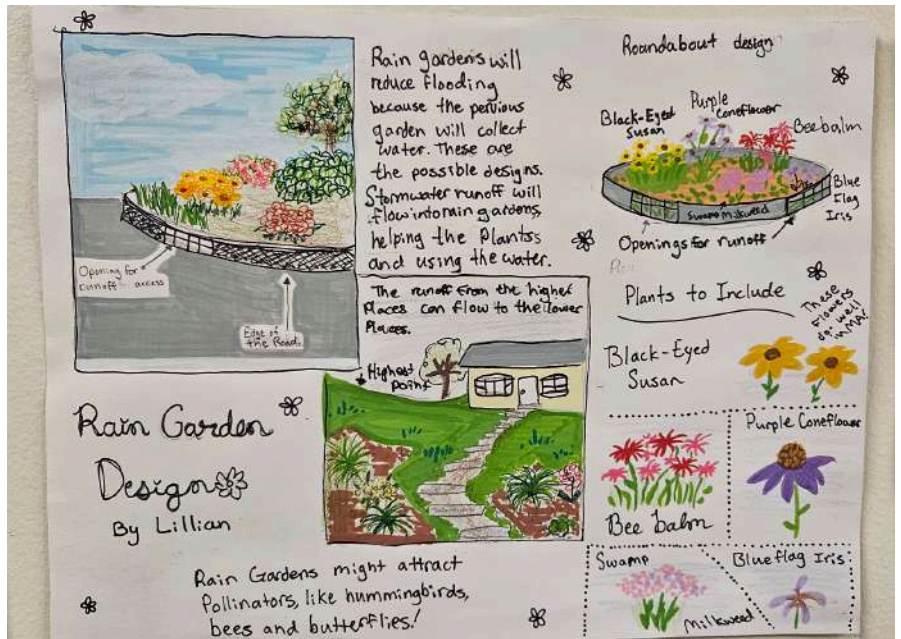 Rain gardens will
reduce flooding
because the pervious
garden will collect
water. These are
the possible designs.
Stormwater runoff will
flow into rain gardens,
helping the Plants
and using the water.
Opening for
runoff access
Edge of
the Road.
The runoff from the higher
Places can flow to the lower
Places.
Highest
Point
Rain Garden
Design
By Lillian
Rain Gardens might attract
Pollinators, like hummingbirds,
bees and butterflies!
Roundabout design
Black-Eyed
Susan
Purple
Coneflower
Bee balm
Blue
Flag
Iris
Swamp Milkweed
Openings for runoff
Plants to Include
These
flowers
do well
in MA!
Black-Eyed
Susan
Bee balm
Purple Coneflower
Swamp
Milkweed
Blue flag Iris